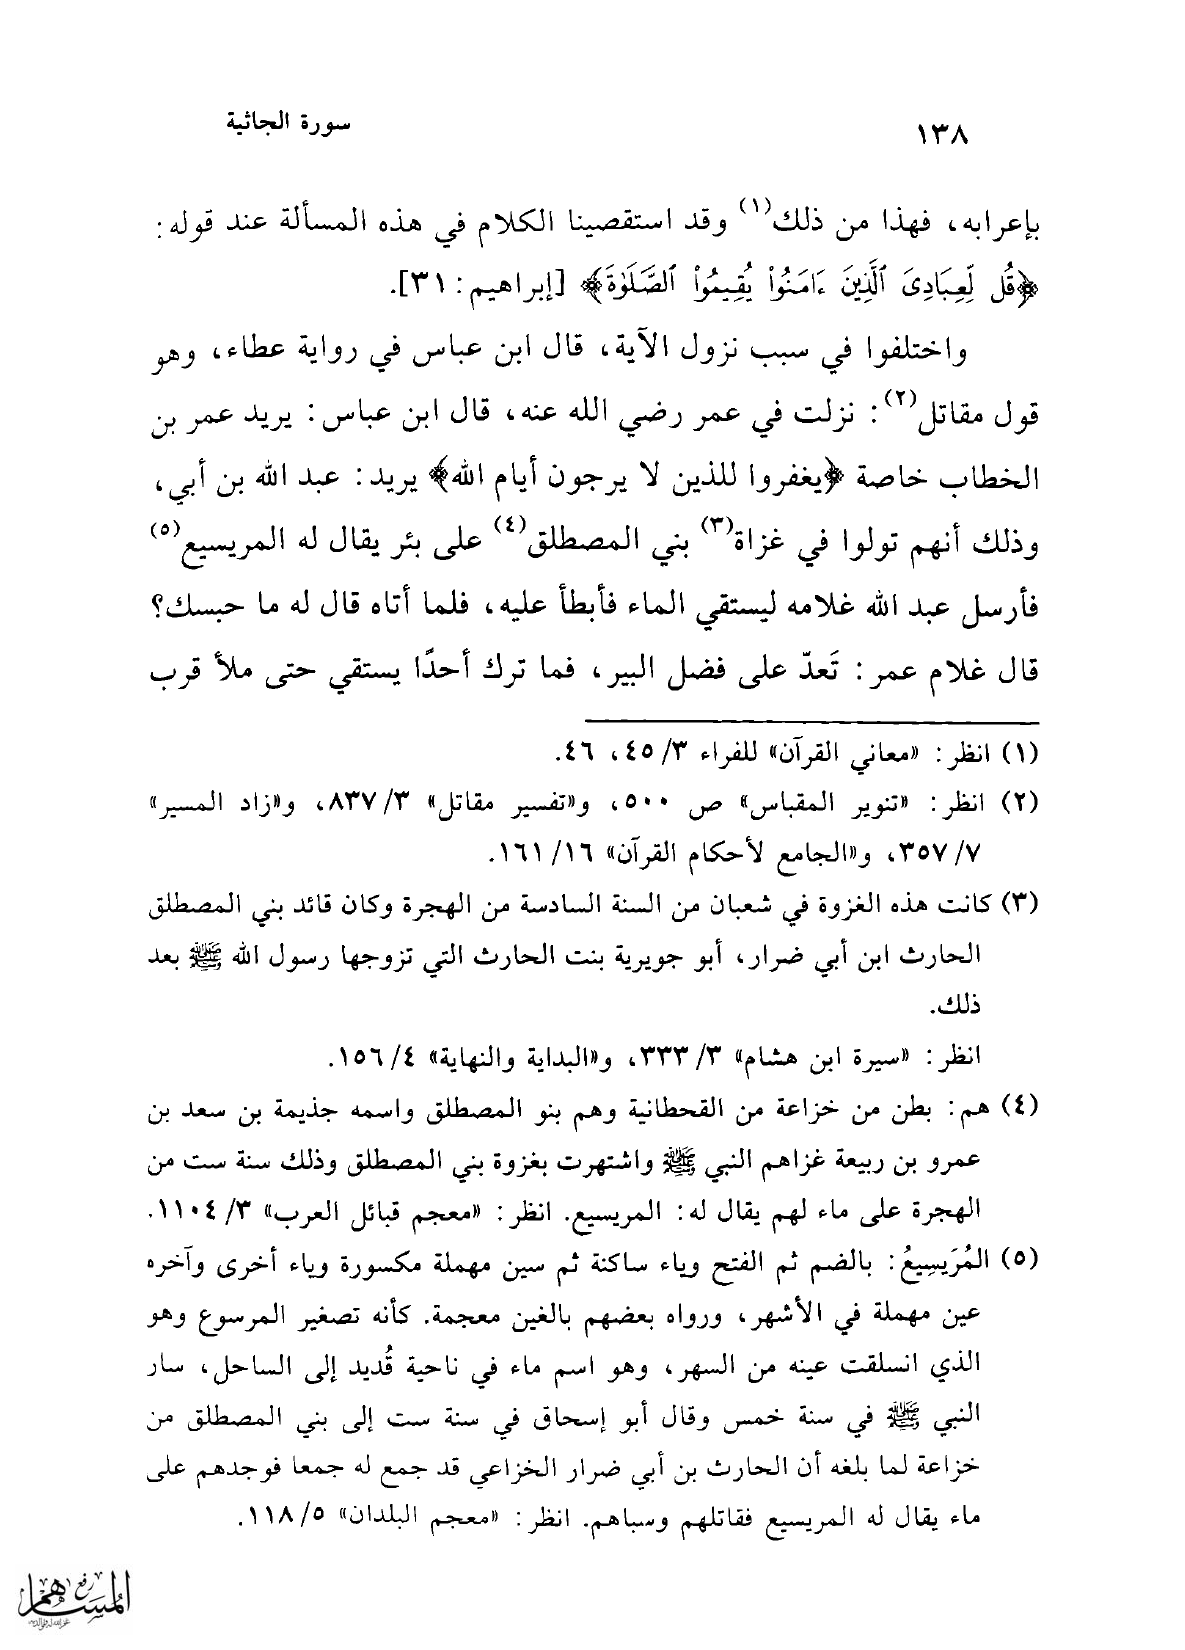 ١٣٨
سورة الجاثية
بإعرابه، فهذا من ذلك(١) وقد استقصينا الكلام في هذه المسألة عند قوله:
﴿قُل لِّعِبَادِىَ ٱلَّذِينَ ءَامَنُوا۟ يُقِيمُوا۟ ٱلصَّلَوٰةَ﴾ [إبراهيم: ٣١].
واختلفوا في سبب نزول الآية، قال ابن عباس في رواية عطاء، وهو
قول مقاتل(٢): نزلت في عمر رضي الله عنه، قال ابن عباس: يريد عمر بن
الخطاب خاصة ﴿يغفروا للذين لا يرجون أيام الله﴾ يريد: عبد الله بن أبي،
وذلك أنهم تولوا في غزاة(٣) بني المصطلق(٤) على بئر يقال له المريسيع(٥)
فأرسل عبد الله غلامه ليستقي الماء فأبطأ عليه، فلما أتاه قال له ما حبسك؟
قال غلام عمر: تَعدّ على فضل البير، فما ترك أحدًا يستقي حتى ملأ قرب
(١) انظر: «معاني القرآن» للفراء ٣/ ٤٥، ٤٦.
(٢) انظر: «تنوير المقباس» ص ٥٠٠، و«تفسير مقاتل» ٣/ ٨٣٧، و«زاد المسير»
٧/ ٣٥٧، و«الجامع لأحكام القرآن» ١٦/ ١٦١.
(٣) كانت هذه الغزوة في شعبان من السنة السادسة من الهجرة وكان قائد بني المصطلق
الحارث ابن أبي ضرار، أبو جويرية بنت الحارث التي تزوجها رسول الله ﷺ بعد
ذلك.
انظر: «سيرة ابن هشام» ٣/ ٣٣٣، و«البداية والنهاية» ٤/ ١٥٦.
(٤) هم: بطن من خزاعة من القحطانية وهم بنو المصطلق واسمه جذيمة بن سعد بن
عمرو بن ربيعة غزاهم النبي ﷺ واشتهرت بغزوة بني المصطلق وذلك سنة ست من
الهجرة على ماء لهم يقال له: المريسيع. انظر: «معجم قبائل العرب» ٣/ ١١٠٤.
(٥) المُرَيسِيعُ: بالضم ثم الفتح وياء ساكنة ثم سين مهملة مكسورة وياء أخرى وآخره
عين مهملة في الأشهر، ورواه بعضهم بالغين معجمة. كأنه تصغير المرسوع وهو
الذي انسلقت عينه من السهر، وهو اسم ماء في ناحية قُديد إلى الساحل، سار
النبي ﷺ في سنة خمس وقال أبو إسحاق في سنة ست إلى بني المصطلق من
خزاعة لما بلغه أن الحارث بن أبي ضرار الخزاعي قد جمع له جمعا فوجدهم على
ماء يقال له المريسيع فقاتلهم وسباهم. انظر: «معجم البلدان» ٥/ ١١٨.
رفع
المساهم